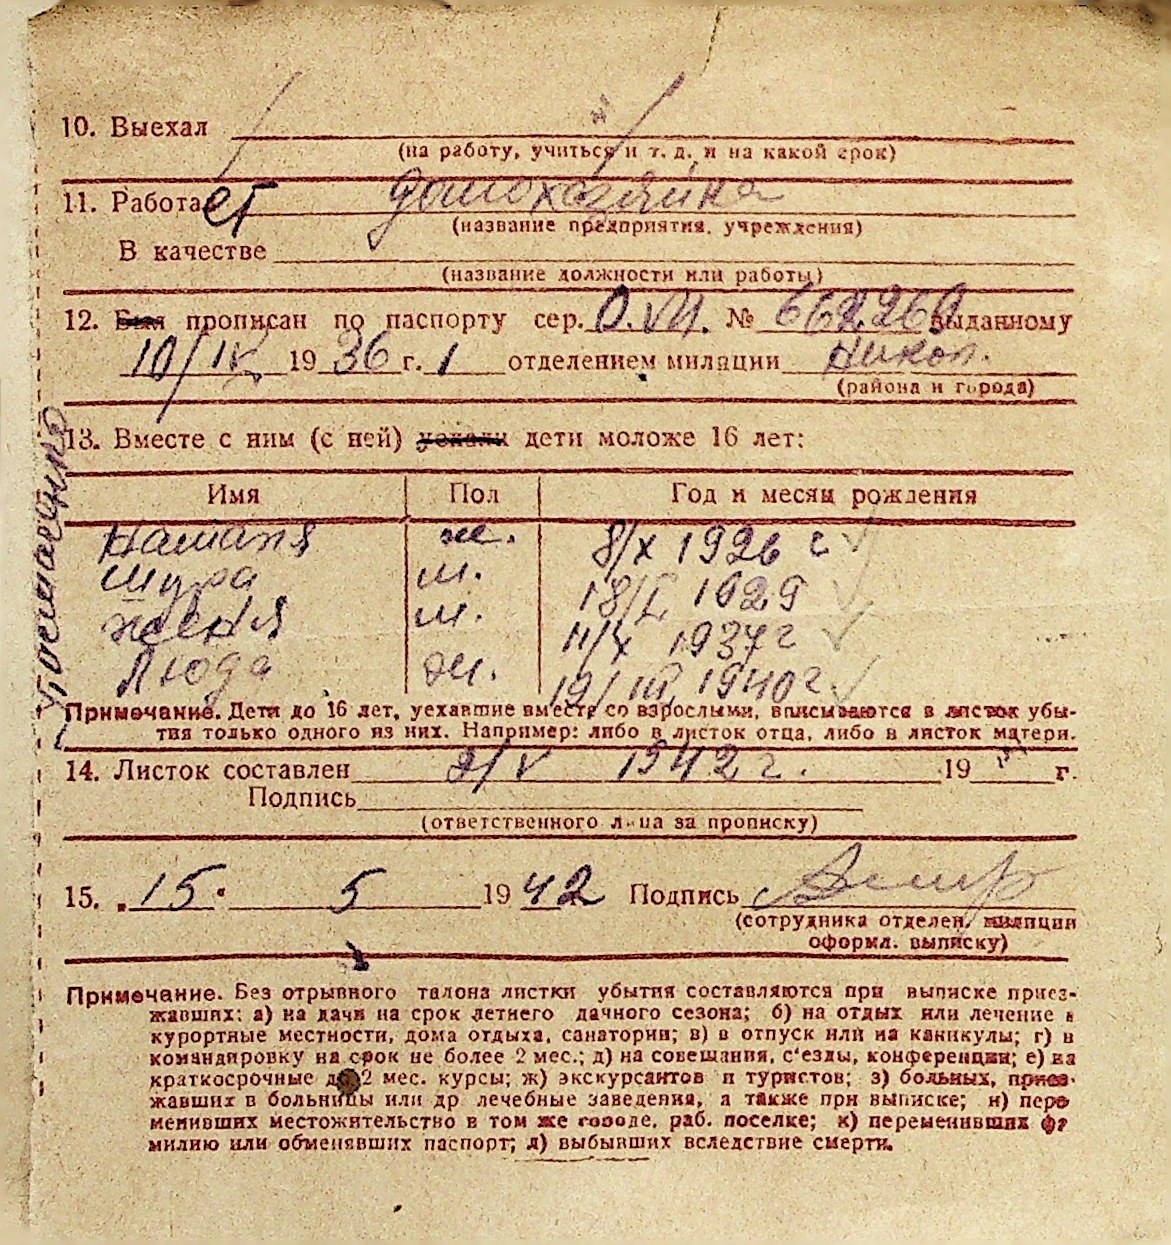 10. Выехал
(на работу, учиться и т. д. и на какой срок)
11. Работает домохозяйка
(название предприятия, учреждения)
В качестве
(название должности или работы)
12. Был прописан по паспорту сер. № выданному
10/IV 1936 г. 1 отделением милиции Никоп.
(района и города)
13. Вместе с ним (с ней) уехали дети моложе 16 лет:
Имя Пол Год и месяц рождения
Наталя ж. 8/X 1926 г
Шура м. 1929
Женя м. 11/X 1937 г
Люда ж. 19/III 1940 г
Примечание. Дети до 16 лет, уехавшие вместе со взрослыми, вписываются в листок убы-
тия только одного из них. Например: либо в листок отца, либо в листок матери.
14. Листок составлен 2/V 1942 г. 19 г.
Подпись
(ответственного лица за прописку)
15. 15 5 1942 Подпись
(сотрудника отделен. милиции
оформл. выписку)
Примечание. Без отрывного талона листки убытия составляются при выписке приез-
жавших: а) на дачи на срок летнего дачного сезона; б) на отдых или лечение в
курортные местности, дома отдыха, санатории; в) в отпуск или на каникулы; г) в
командировку на срок не более 2 мес.; д) на совещания, с'езды, конференции; е) на
краткосрочные до 2 мес. курсы; ж) экскурсантов и туристов; з) больных, приез-
жавших в больницы или др лечебные заведения, а также при выписке; и) пере
менивших местожительство в том же городе, раб. поселке; к) переменивших фа
милию или обменявших паспорт; л) выбывших вследствие смерти.